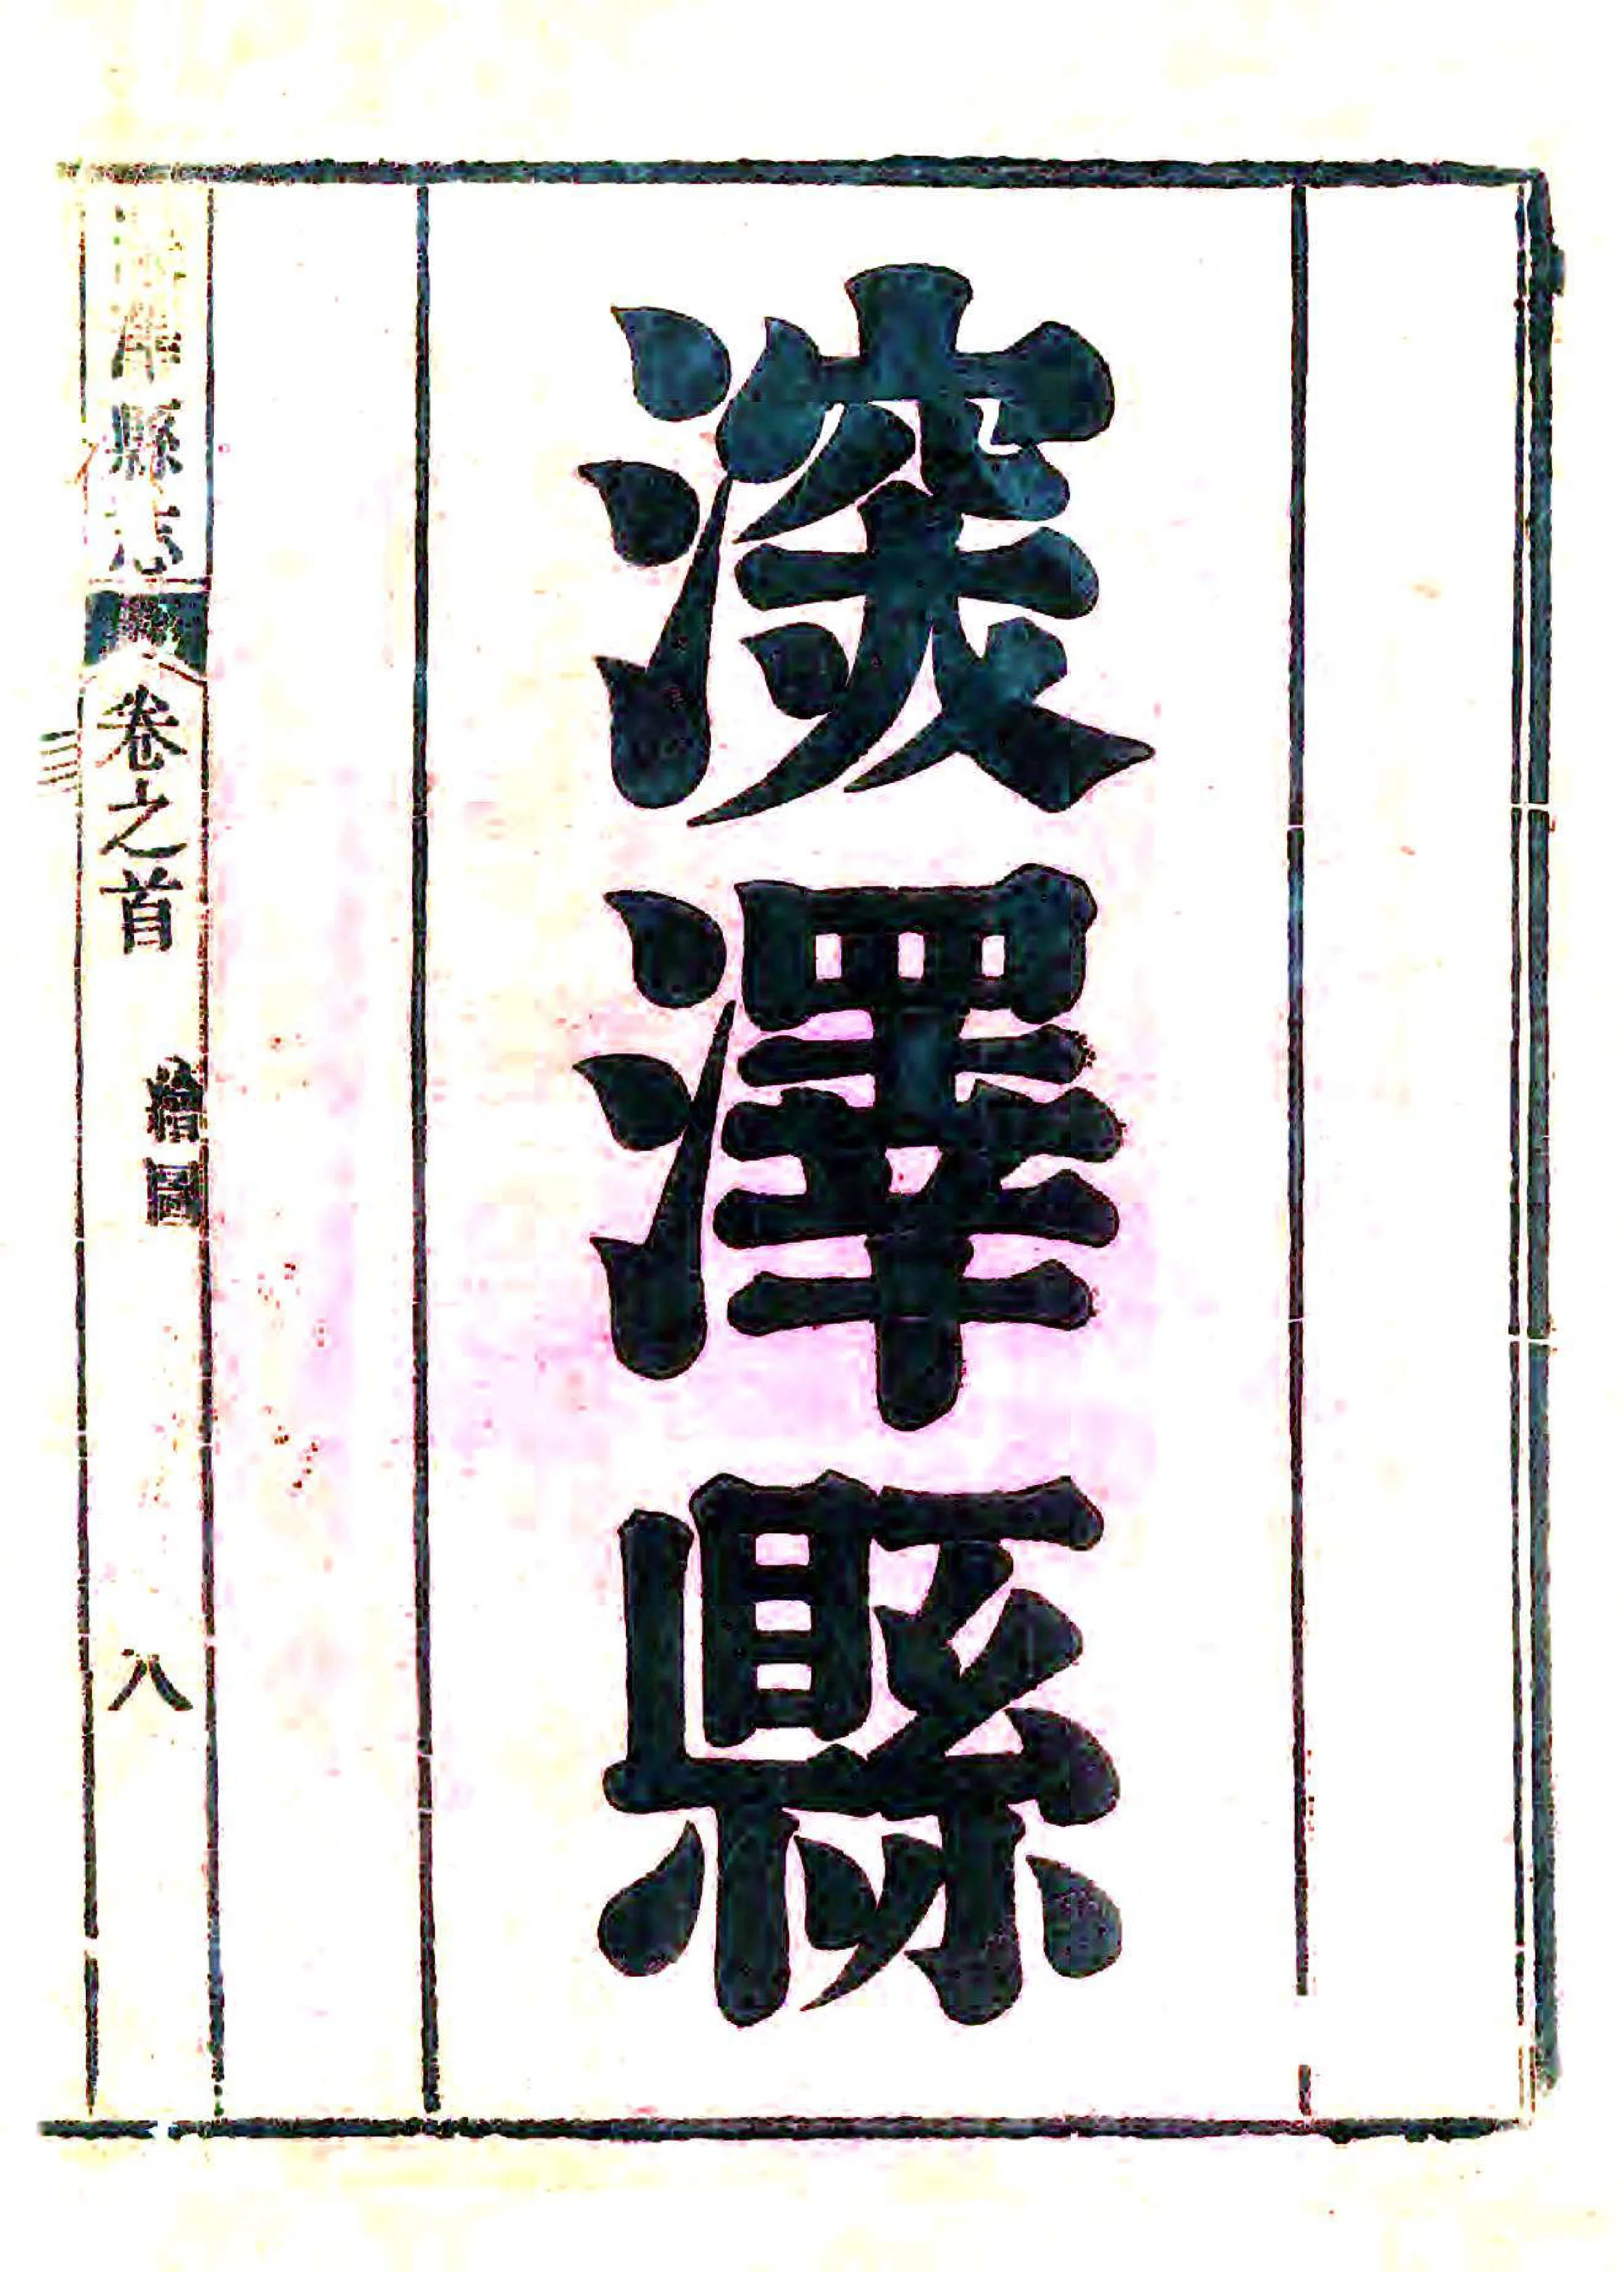 深澤縣
深澤縣志
卷之首
繪圖
八